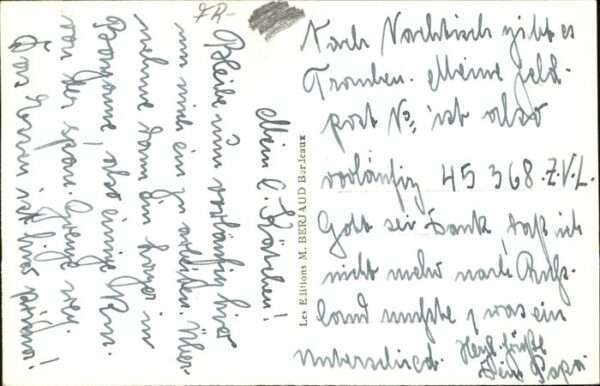 FR-
Mein l. Körchen!
Bleibe nun vorläufig hier
um mich ein zu arbeiten. Über-
nehme dann ein Lager in
Bayonne, also einige Km.
von der span. Grenze weg.
Das kommt ist hier prima!
Nach Nachtisch gibt es
Trauben. Meine Feld-
post No. ist also
vorläufig 45 368. Z.V.L.
Gott sei Dank daß ich
nicht mehr nach Ruß-
land mußte, was ein
Unterschied. Herzl. Grüße
Dein Papa
Les Editions M. BERJAUD Bordeaux